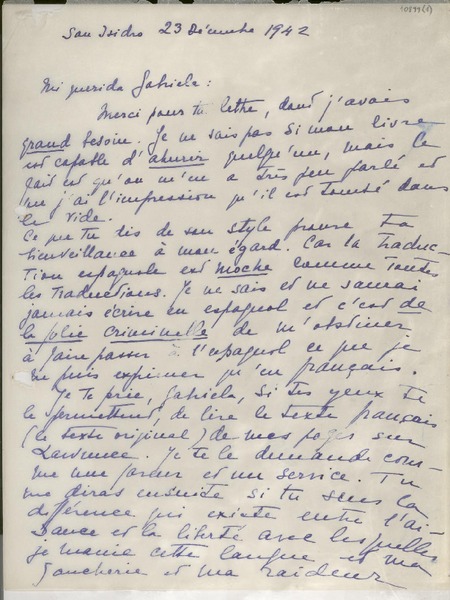 10899(1)
San Isidro 23 Décembre 1942
Mi querida Gabriela :
Merci pour ta lettre, dont j'avais
grand besoin. Je ne sais pas si mon livre
est capable d'ahurir quelqu'un, mais le
fait est qu'on m'en a très peu parlé et
que j'ai l'impression qu'il est tombé dans
le vide.
Ce que tu dis de son style prouve ta
bienveillance à mon égard. Car la traduc-
tion espagnole est moche comme toutes
les traductions. Je ne sais et ne saurai
jamais écrire en espagnol et c'est de
la folie criminelle de m'obstiner
à faire passer à l'espagnol ce que je
ne puis exprimer qu'en français.
Je te prie, Gabriela, si tes yeux te
le permettent, de lire le texte français
(le texte original) de mes pages sur
Lawrence. Je te le demande com-
me une faveur et un service. Tu
me diras ensuite si tu sens la
différence qui existe entre l'ai-
sance et la liberté avec lesquelles
je manie cette langue et ma
gaucherie et ma raideur